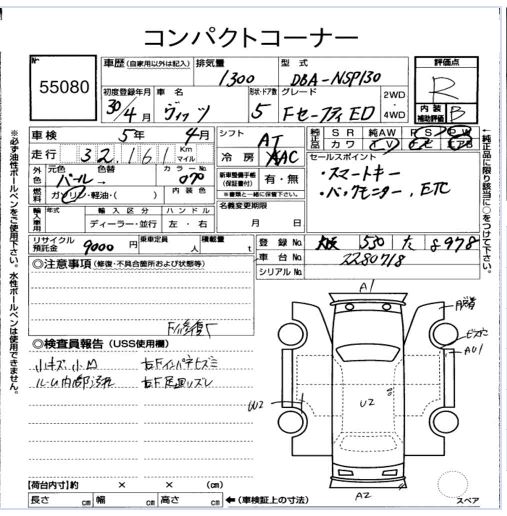 コンパクトコーナー
No. 55080
車歴 (自家用以外は記入) 排気量 1300 型式 DBA-NSP130
評価点 R
内装補助評価 B
初度登録年月 30/4月 車名 ヴィッツ 形状・ドア数 5 グレード FセーフティED 2WD・4WD
車検 5年 4月 シフト AT
純正品 SR 純AW PS PW カワ TV ナビ エアB
走行 32,161 Km マイル 冷房 AAC
セールスポイント
・スマートキー
・バックモニター, ETC
外色 元色 パール 色替 カラーNo. 070
新車整備手帳(保証書付) 有・無
燃料 ガソリン・軽油・( ) 内装色
※書類と一緒に保管下さい。
輸入車用 年式 輸入区分 ディーラー・並行 ハンドル 左・右
名義変更期限 月 日
リサイクル預託金 9000円 乗車定員 人 積載量 t
登録No. 大阪 530 た 8978
車台No. 2280718
シリアルNo.
◎注意事項 (修復・不具合箇所および状態等)
F/修復.
◎検査員報告 (USS使用欄)
小キズ、小凹 右Fインパネヒズミ
ルーム内部汚れ 右F足回りズレ
A1
U2
W2
AU1
A2
スペア
【荷台内寸】約 × × (cm)
長さ cm 幅 cm 高さ cm ←(車検証上の寸法)
※必ず油性ボールペンをご使用下さい。水性ボールペンは使用できません。
←純正品に限り該当に○をつけて下さい。